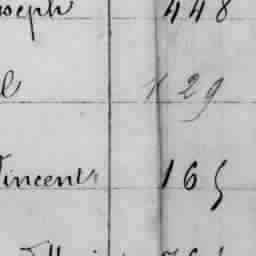 oseph 448
l 129
Vincent 165